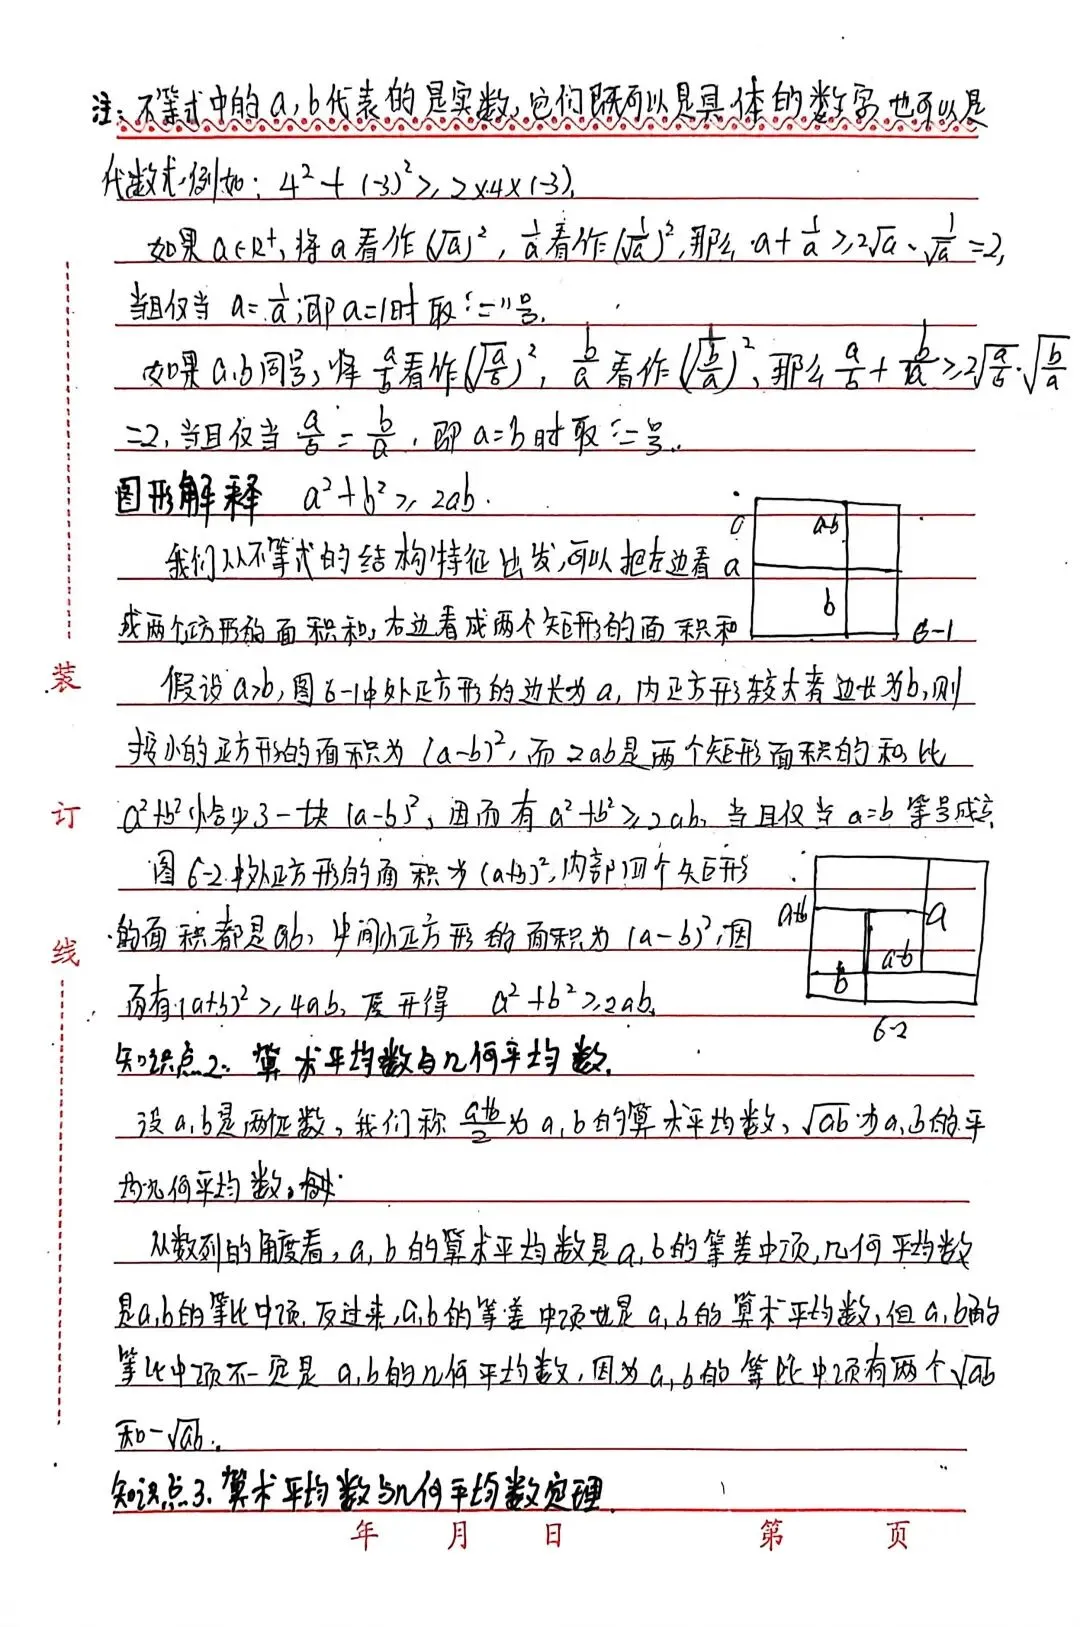 注：不等式中的a,b代表的是实数，它们既可以是具体的数字也可以是
代数式，例如：4²+(-3)²≥2×4×(-3),
如果a∈R⁺,将a看作(√a)²，1/a看作(√(1/a))²,那么a+1/a≥2√a·√(1/a)=2,
当且仅当a=1/a,即a=1时取"="号.
如果a,b同号，将a/b看作(√(a/b))²，b/a看作(√(b/a))²，那么a/b+b/a≥2√(a/b)·√(b/a)
=2,当且仅当a/b=b/a，即a=b时取"="号.
图形解释 a²+b²≥2ab.
我们从不等式的结构特征出发，可以把左边看
成两个正方形的面积和，右边看成两个矩形的面积和
a
a-b
b
6-1
假设a>b,图6-1中外正方形的边长为a,内正方形较大者边长为b,则
较小的正方形的面积为(a-b)²，而2ab是两个矩形面积的和，比
a²+b²恰少了一块(a-b)²，因而有a²+b²≥2ab，当且仅当a=b等号成立
图6-2中外正方形的面积为(a+b)²,内部四个矩形
的面积都是ab，中间小正方形的面积为(a-b)²，因
而有(a+b)²≥4ab，展开得 a²+b²≥2ab.
a+b
a
a-b
b
6-2
知识点2：算术平均数与几何平均数.
设a,b是两正数，我们称(a+b)/2为a,b的算术平均数，√ab为a,b的平
均几何平均数。
从数列的角度看，a,b的算术平均数是a,b的等差中项,几何平均数
是a,b的等比中项,反过来,a,b的等差中项也是a,b的算术平均数,但a,b的
等比中项不一定是a,b的几何平均数,因为a,b的等比中项有两个√ab
和-√ab.
知识点3.算术平均数与几何平均数定理.
装
订
线
年 月 日 第 页